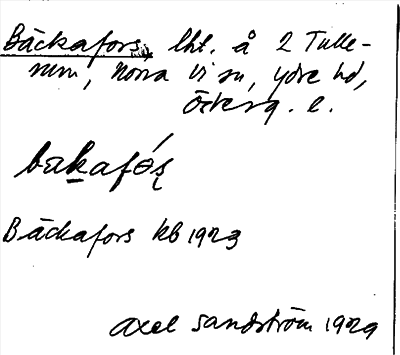 Bäckafors, lht. å 2 Tulle-
rum, Norra Vi sn, Ydre hd,
Österg. l.
bakafǿʂ
Bäckafors kb 1923
Axel Sandström 1929